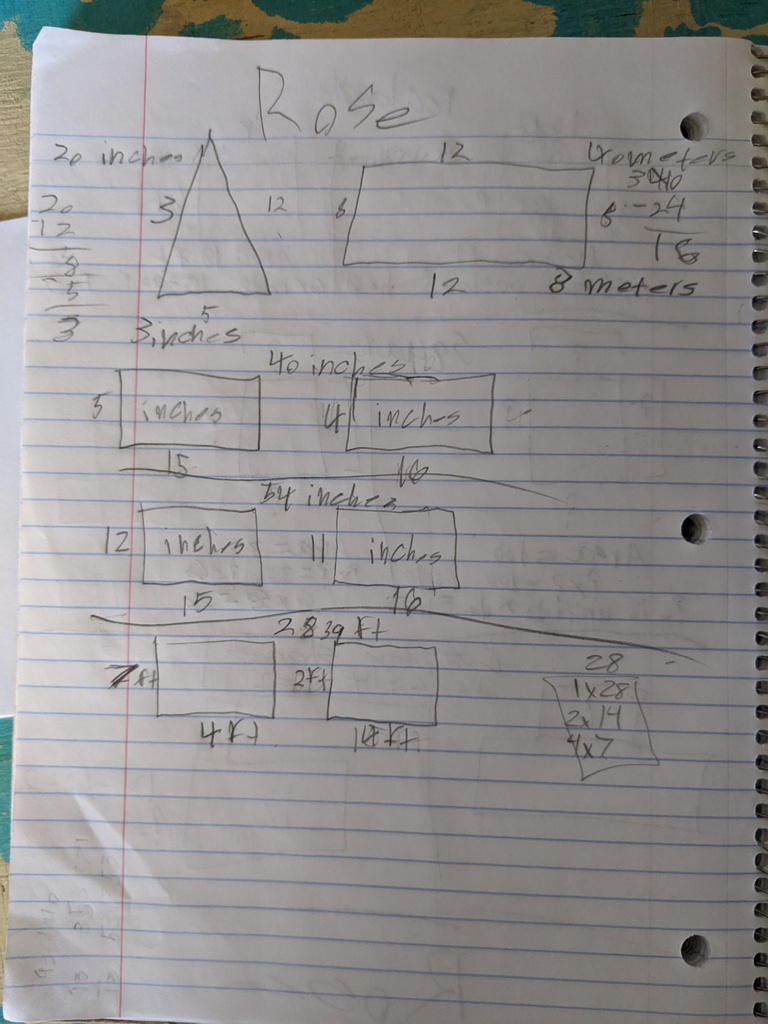 Rose
20 inches
20
12
8
-5
3
3
12
5
3 inches
12
40 meters
40
-24
16
6
12
8 meters
40 inches
5 inches
15
4 inches
16
54 inches
12 inches
15
11 inches
16
28 sq ft
7 ft
4 ft
2 ft
14 ft
28
1x28
2x14
4x7